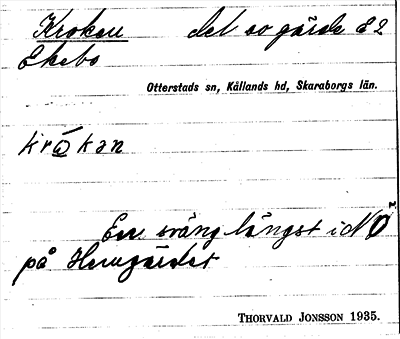 Kroken del av gärde E 2
Ekebo
Otterstads sn, Kållands hd, Skaraborgs län.
kråkan
En sväng längst i NO
på Hemgärdet
THORVALD JONSSON 1935.